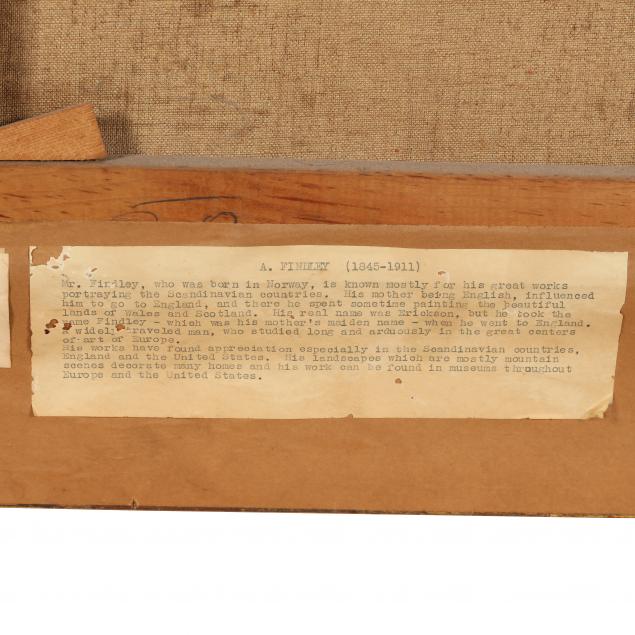 A. FINDLEY (1845-1911)
Mr. Findley, who was born in Norway, is known mostly for his great works
portraying the Scandinavian countries. His mother being English, influenced
him to go to England, and there he spent sometime painting the beautiful
lands of Wales and Scotland. His real name was Erickson, but he took the
name Findley - which was his mother's maiden name - when he went to England.
A widely traveled man, who studied long and arduously in the great centers
of art of Europe.
His works have found appreciation especially in the Scandinavian countries,
England and the United States. His landscapes which are mostly mountain
scenes decorate many homes and his work can be found in museums throughout
Europe and the United States.